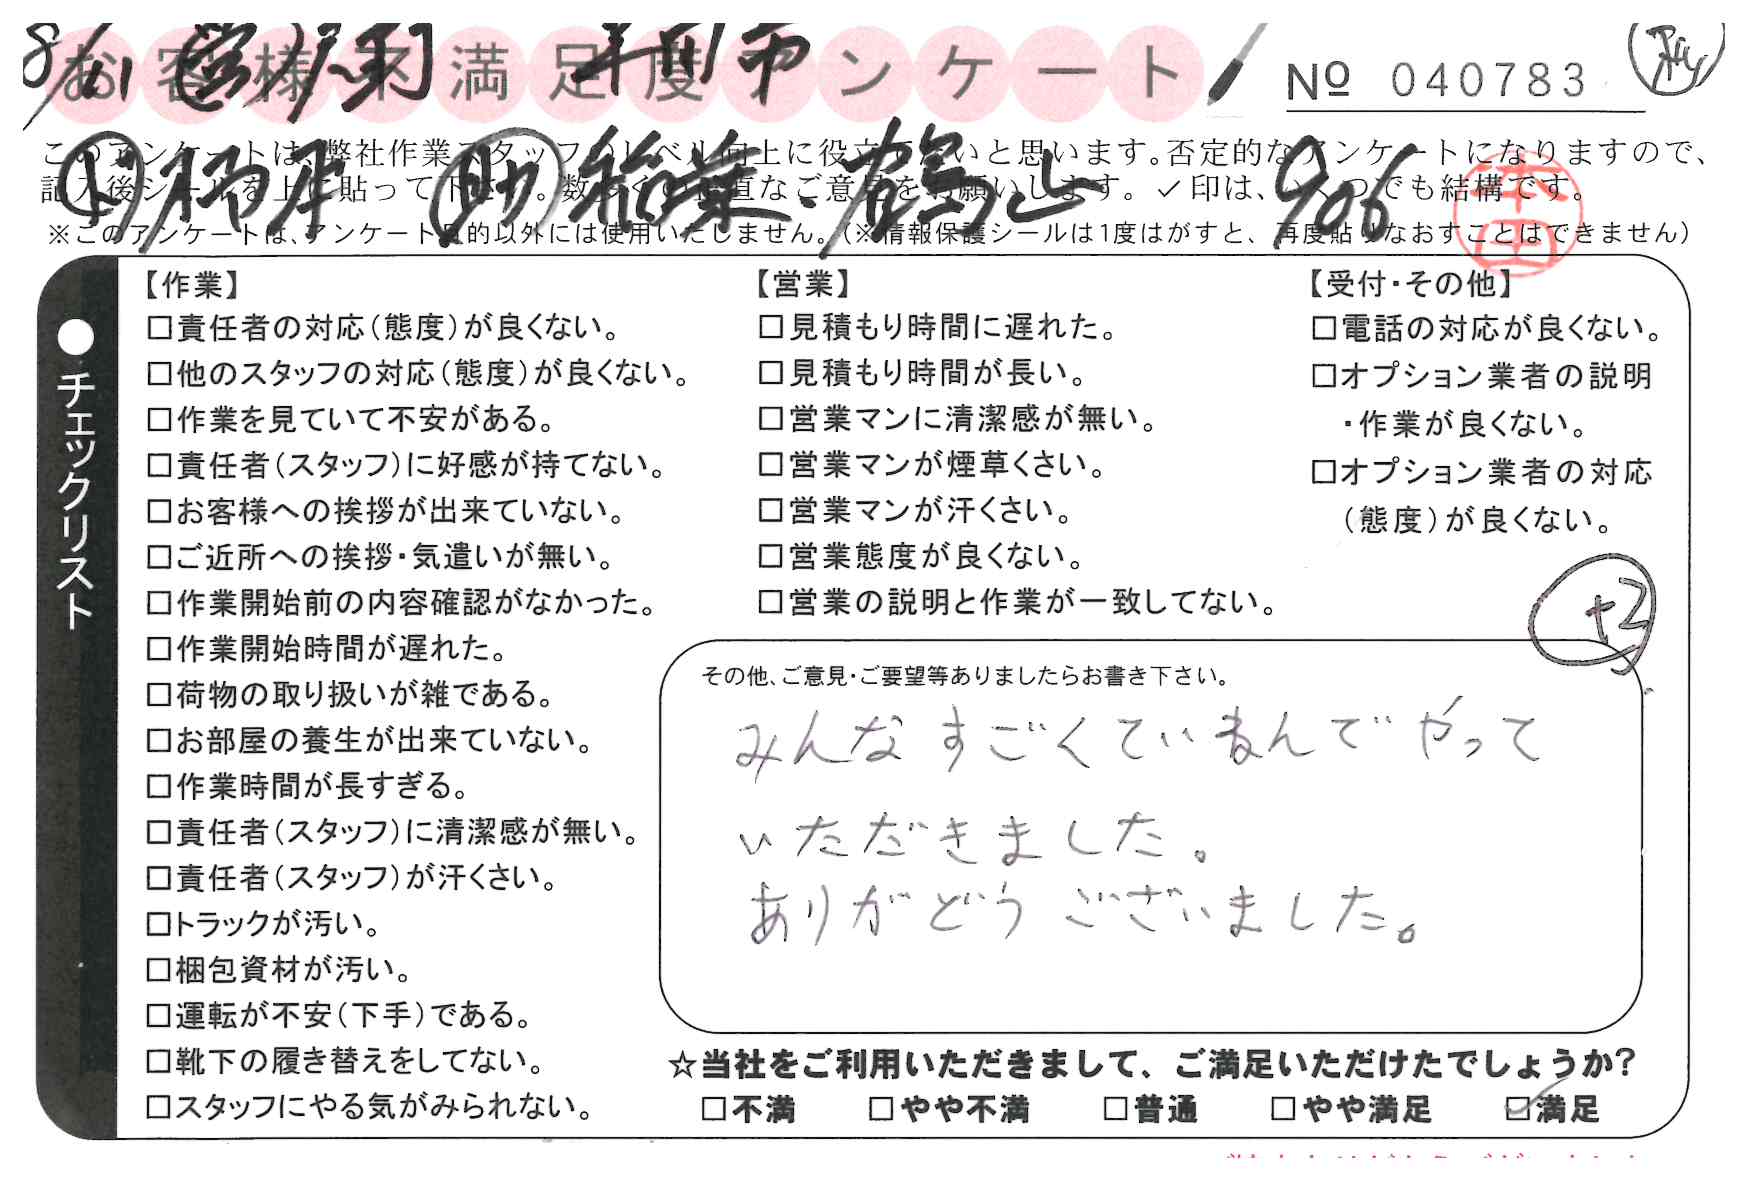 8/21
お客様不満足度アンケート
№ 040783
このアンケートは、弊社作業スタッフのレベル向上に役立てたいと思います。否定的なアンケートになりますので、
記入後シールを上に貼って下さい。数多くの正直なご意見をお願いします。✓印は、いくつでも結構です。
助 稲葉・ 906
本田
※このアンケートは、アンケート目的以外には使用いたしません。（※情報保護シールは1度はがすと、再度貼りなおすことはできません）
●チェックリスト
【作業】
□責任者の対応（態度）が良くない。
□他のスタッフの対応（態度）が良くない。
□作業を見ていて不安がある。
□責任者（スタッフ）に好感が持てない。
□お客様への挨拶が出来ていない。
□ご近所への挨拶・気遣いが無い。
□作業開始前の内容確認がなかった。
□作業開始時間が遅れた。
□荷物の取り扱いが雑である。
□お部屋の養生が出来ていない。
□作業時間が長すぎる。
□責任者（スタッフ）に清潔感が無い。
□責任者（スタッフ）が汗くさい。
□トラックが汚い。
□梱包資材が汚い。
□運転が不安（下手）である。
□靴下の履き替えをしてない。
□スタッフにやる気がみられない。
【営業】
□見積もり時間に遅れた。
□見積もり時間が長い。
□営業マンに清潔感が無い。
□営業マンが煙草くさい。
□営業マンが汗くさい。
□営業態度が良くない。
□営業の説明と作業が一致してない。
【受付・その他】
□電話の対応が良くない。
□オプション業者の説明
・作業が良くない。
□オプション業者の対応
（態度）が良くない。
+2
その他、ご意見・ご要望等ありましたらお書き下さい。
みんなすごくていねんでやって
いただきました。
ありがどうございました。
☆当社をご利用いただきまして、ご満足いただけたでしょうか？
□不満 □やや不満 □普通 □やや満足 ☑満足